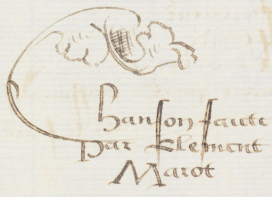 Chanson faicte
par Clement
Marot